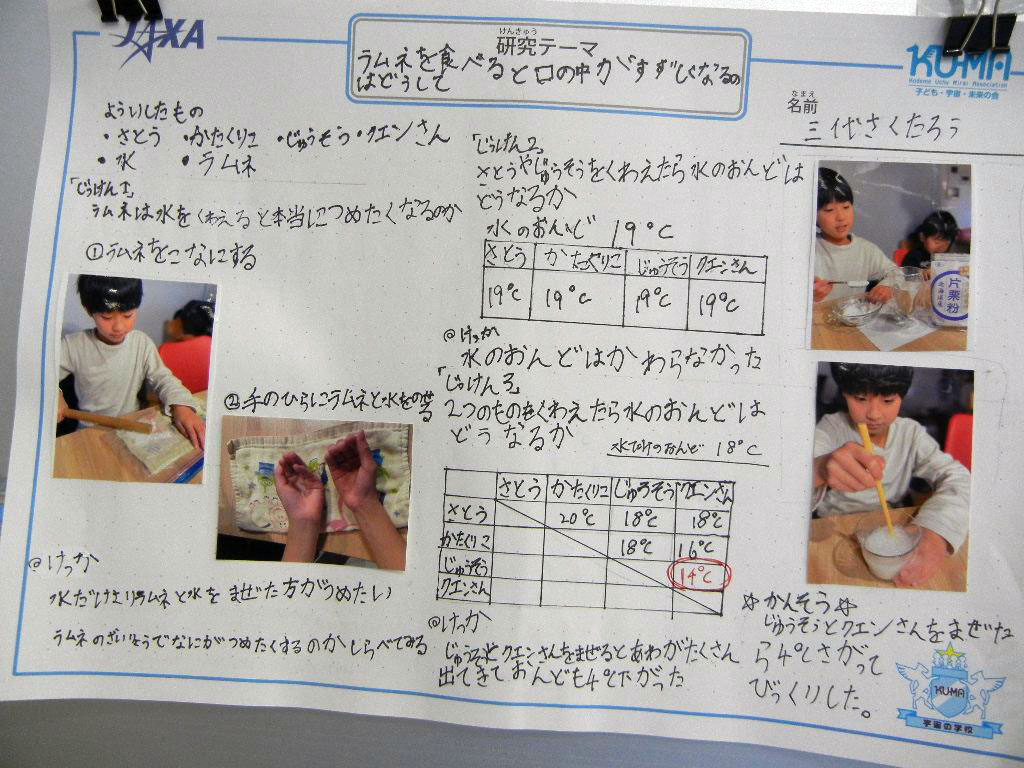 JAXA
けんきゅう
研究テーマ
ラムネを食べると口の中がすずしくなるの
はどうして
KU-MA
Kodomo Uchu Mirai Association
子ども・宇宙・未来の会
なまえ
名前
三代さくたろう
よういしたもの
・さとう ・かたくりこ ・じゅうそう・クエンさん
・水 ・ラムネ
「じっけん1」
ラムネは水をくわえると本当につめたくなるのか
①ラムネをこなにする
②手のひらにラムネと水をのせる
@けっか
水だけよりラムネと水をまぜた方がつめたい
ラムネのざいりょうでなにがつめたくするのかしらべてみる
「じっけん2」
さとうやじゅうそうをくわえたら水のおんどは
どうなるか
水のおんど 19℃
さとう かたくりこ じゅうそう クエンさん
19℃ 19℃ 19℃ 19℃
@けっか
水のおんどはかわらなかった
「じっけん3」
2つのものをくわえたら水のおんどは
どうなるか
水だけのおんど 18℃
さとう かたくりこ じゅうそう クエンさん
さとう 20℃ 18℃ 18℃
かたくりこ 18℃ 16℃
じゅうそう 14℃
クエンさん
@けっか
じゅうそうとクエンさんをまぜるとあわがたくさん
出てきておんども4℃下がった
片栗粉
北海道産
☆かんそう☆
じゅうそうとクエンさんをまぜた
ら4℃さがって
びっくりした。
KU-MA
宇宙の学校